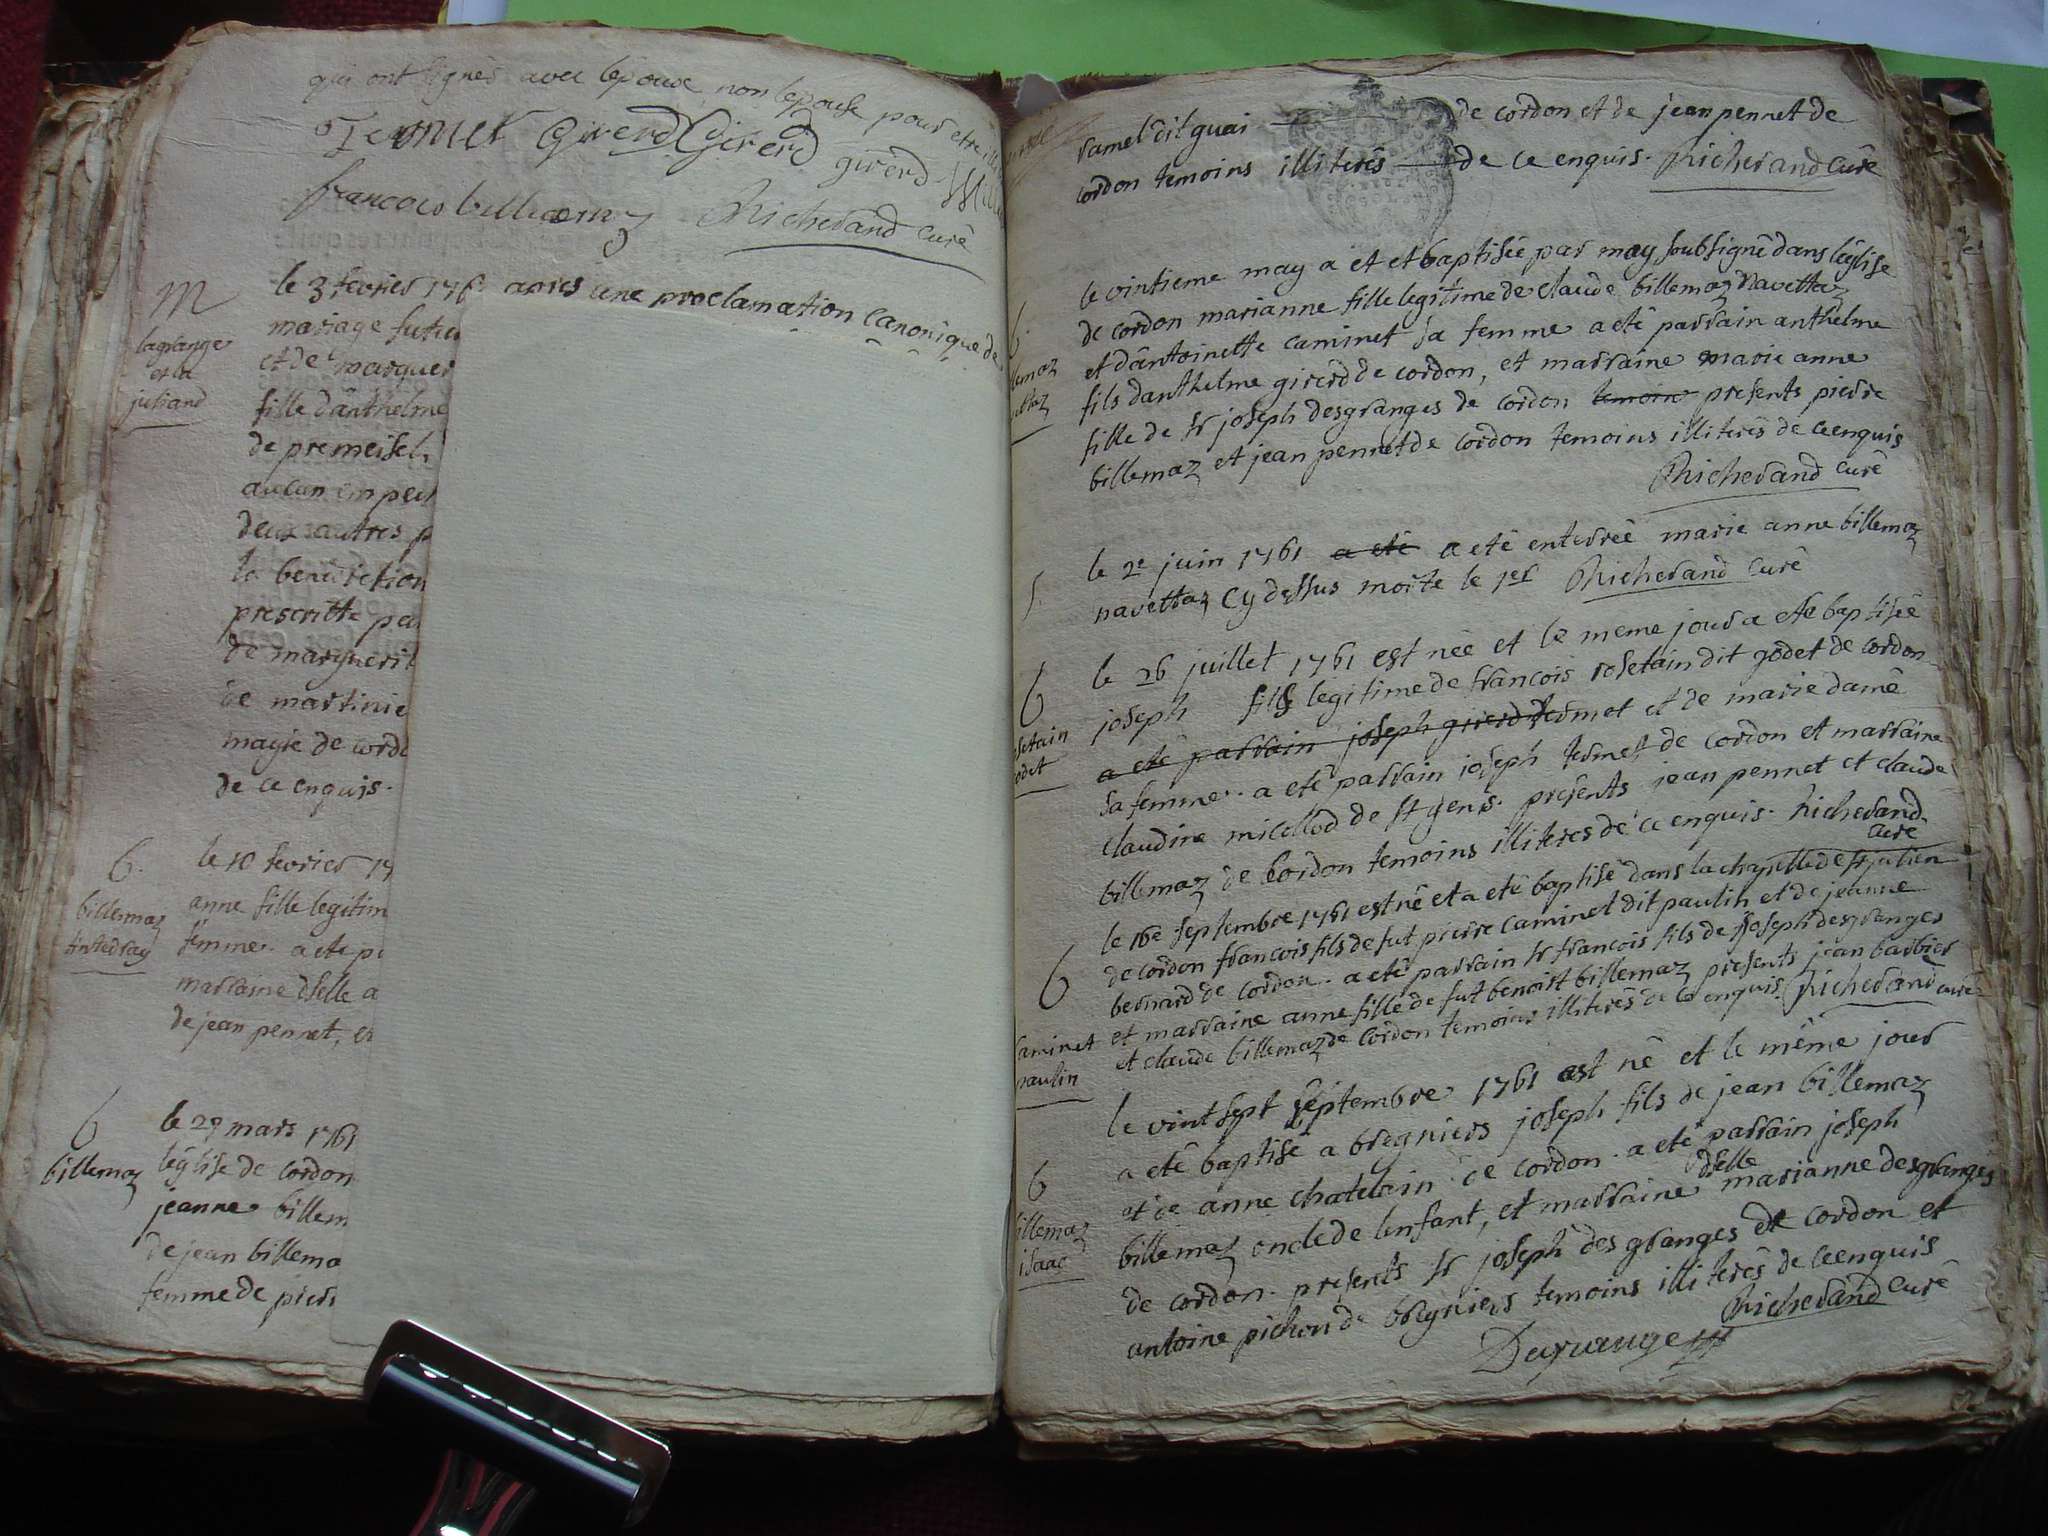 qui ont signés avec lepoux non lepouse pour etre
Termet Girerd Girerd girerd
francois billiemaz Richerand curé
M
lagrange
et la
juliand
le 3 fevrier 176 apres une proclamation canonique de
mariage futur
et de marguer
fille danthelme
de premeisel
aucun empec
deux autres p
la benediction
prescritte par
de marguerit
de martinie
mayie de cord
de ce enquis.
b.
billemaz
tintedray
le 10 fevrier 17
anne fille legitim
femme. a ete p
marraine dselle a
de jean pennet, et
b
billemaz
le 29 mars 1761
léglise de cordon
jeanne billem
de jean billema
femme de pierr
ramel dit guai de cordon et de jean pennet de
cordon temoins illiterés de ce enquis. Richerand curé
b.
lemaz
ettaz
le vintieme may a et et baptisée par moy soubsigné dans léglise
de cordon marianne fille legitime de claude billemaz Navettaz
et dântoinette caminet sa femme a eté parrain anthelme
fils danthelme girerd de cordon, et marraine marie anne
fille de sr joseph desgranges de cordon temoin presents pierre
billemaz et jean pennet de cordon temoins illiterés de ce enquis
Richerand curé
s.
le 2e juin 1761 a eté a eté enterreé marie anne billemaz
navettaz cy dessus morte le 1er Richerand curé
b
setain
odet
le 26 juillet 1761 est née et le meme jour a ete baptisée
joseph fils legitime de francois rosetain dit godet de cordon
a eté parrain joseph girerd termet et de marie damé
sa femme. a eté parrain joseph termet de cordon et marraine
claudine micollod de st genis. présents jean pennet et claude
billemaz de cordon temoins illiteres de ce enquis. Richerand
curé
b
caminet
paulin
le 16e septembre 1761 est né et a eté baptisé dans la chapelle de st julien
de cordon francois fils de fut pierre caminet dit paulin et de jeanne
bernard de cordon. a eté parrain sr francois fils de sr joseph desgranges
et marraine anne fille de fut benoist billemaz presents jean barbier
et claude billemaz de cordon temoins illiterés de ce enquis. Richerand curé
b
billemaz
isaac
le vintsept septembre 1761 est né et le même jour
a eté baptisé a bregniers joseph fils de jean billemaz
et de anne chatelain de cordon. a eté parrain joseph
billemaz oncle de lenfant, et marraine dselle marianne desgranges
de cordon. presents sr joseph des granges de cordon et
antoine pichon de bregniers temoins illiterés de ce enquis
Richerand curé